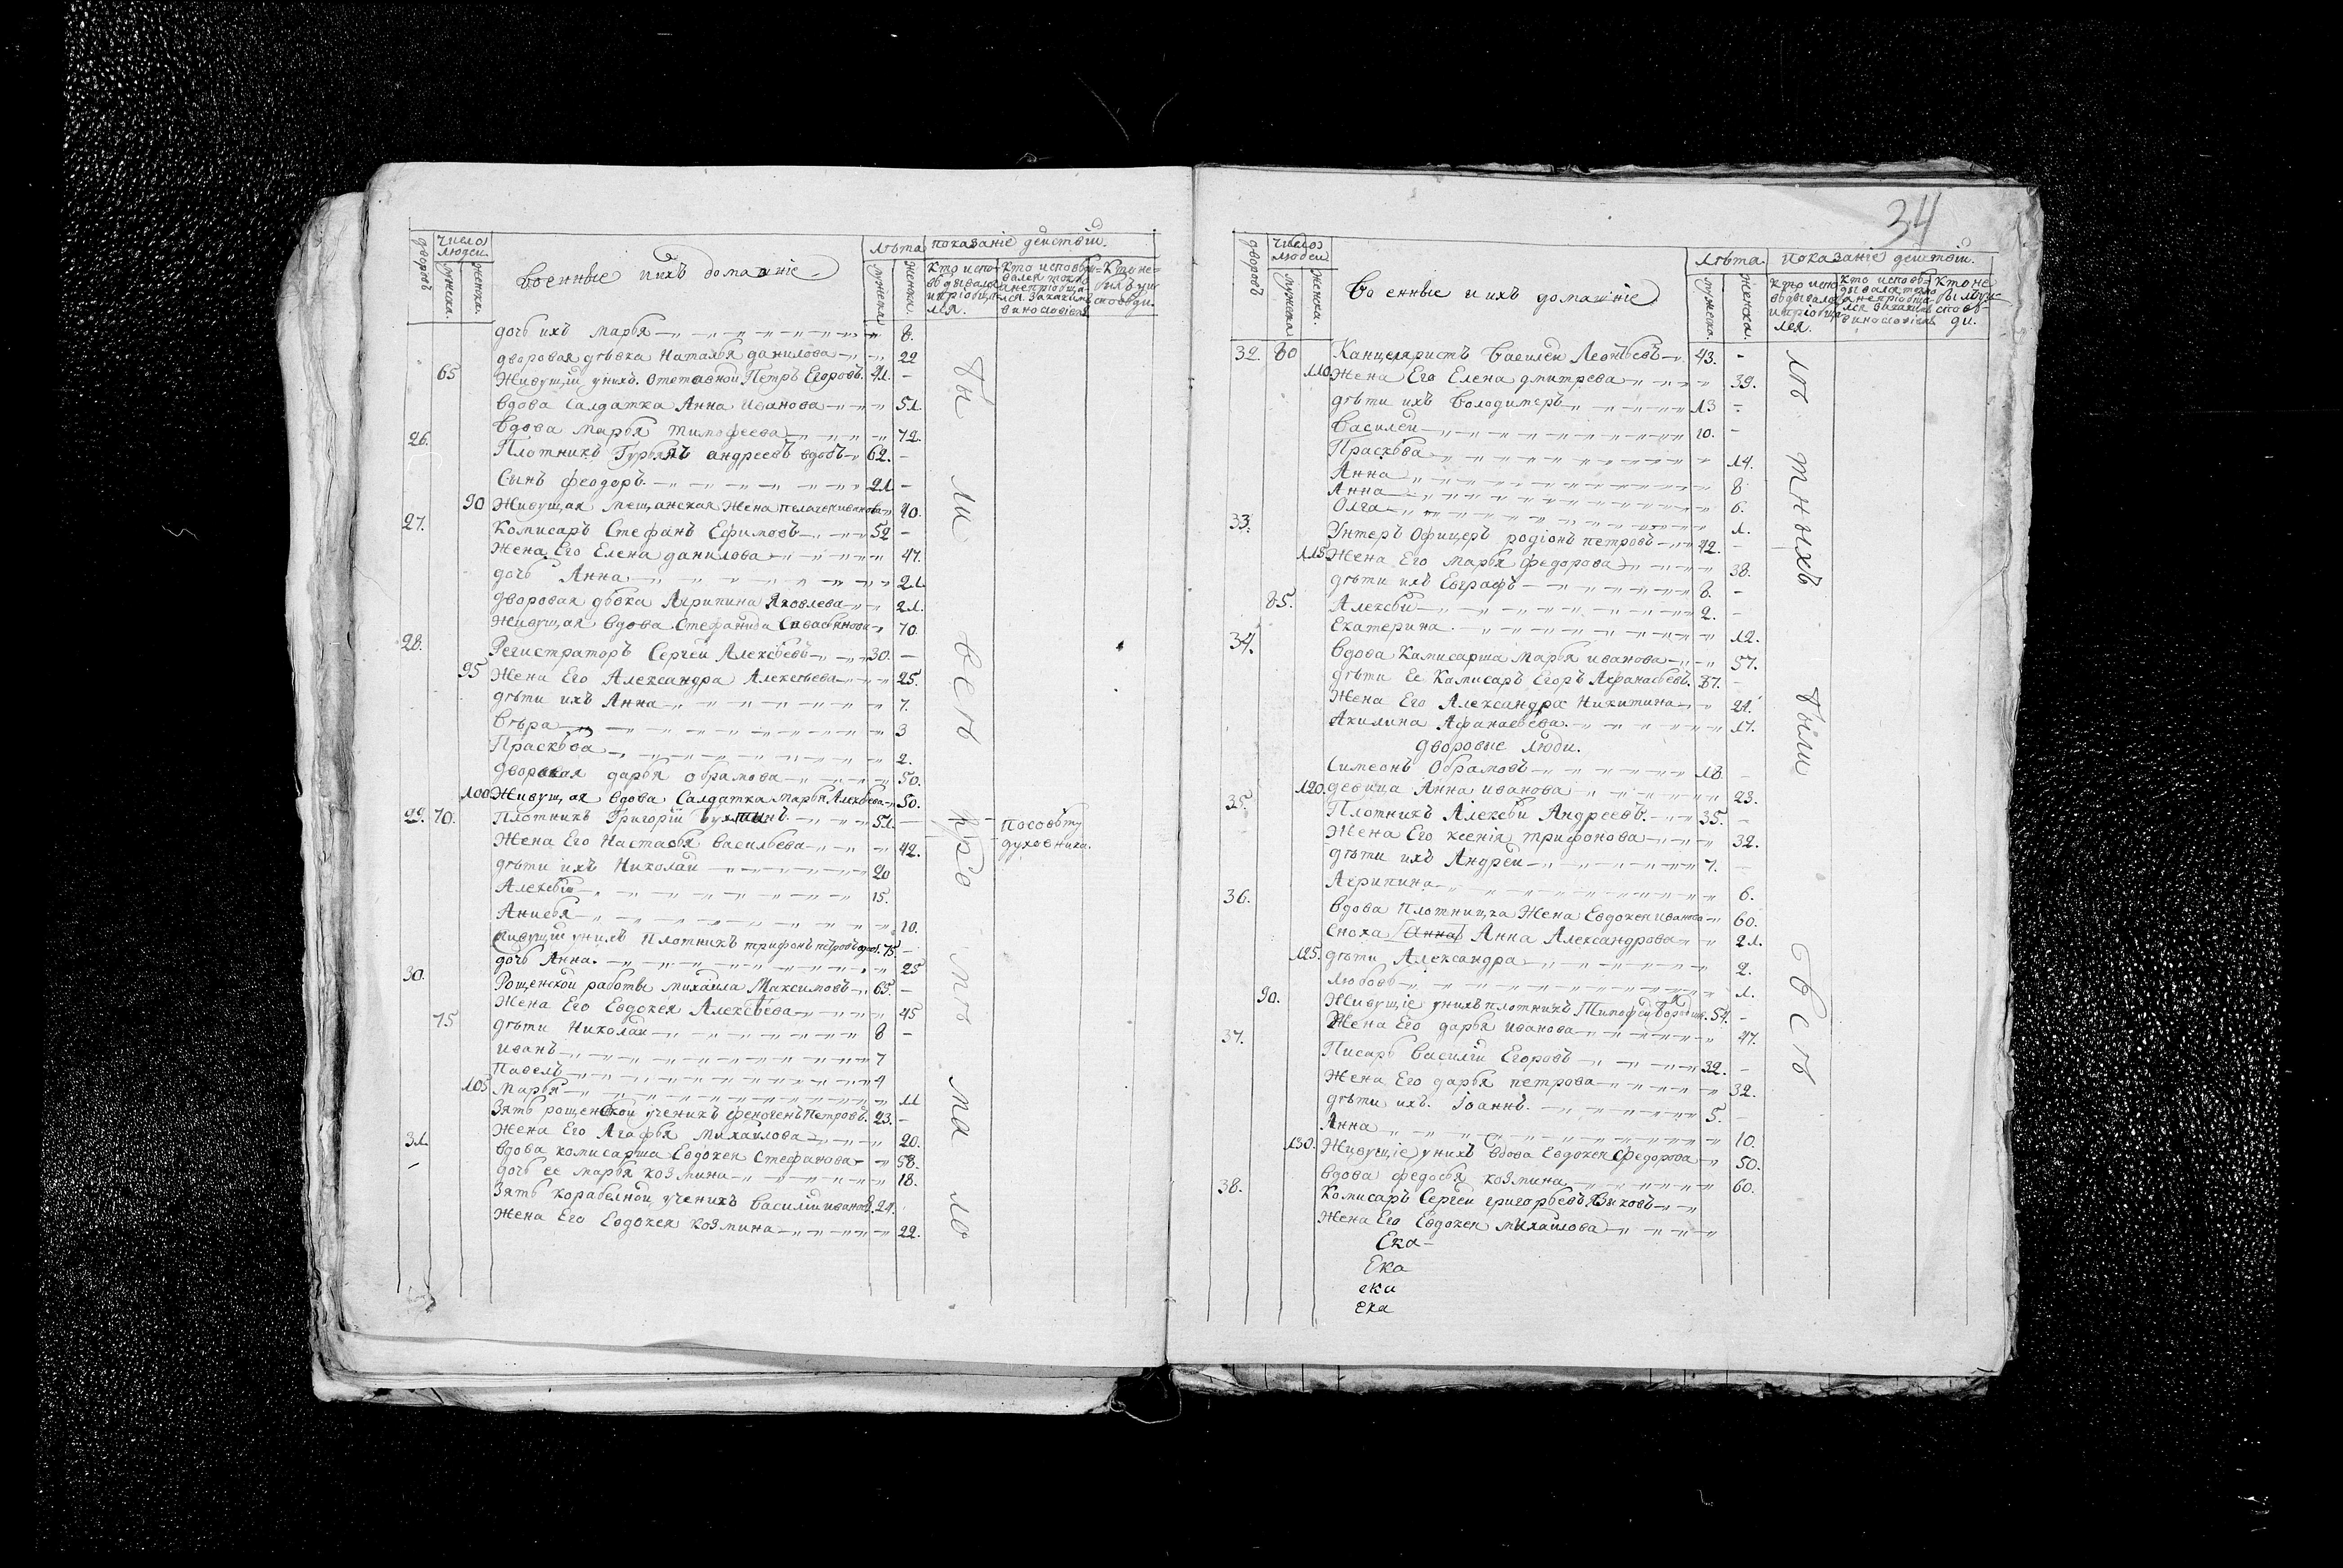 дворовъ
число людей
мужеска.
женска.
военные и ихъ домашніе
лѣта
мужеска
женска.
показаніе действій.
кто испо-
вѣдывался
и пріобщи
лся.
кто исповѣды-
вался токмо
а непріобща-
лся за какимъ
винословіемъ
кто не
былъ у и
споведи.
дочь ихъ Марья 8.
дворовая дѣвка Наталья данилова 22
65 Живущій у нихъ отставной Петръ Егоровъ. 41. -
вдова Салдатка Анна Иванова 51.
вдова Марья Тимофеева 72.
26. Плотникъ Гурьянъ андреевъ вдовъ 62. -
Сынъ Феодоръ. 21 -
90 Живущая мещанская Жена пелагея иванова 40.
27. Комисаръ Стефанъ Ефимовъ 52 -
Жена Его Елена данилова 47.
дочь Анна 21
дворовая дѣвка Агрипина Яковлева 21.
Живущая вдова Стефанида Савастьянова 70.
28. Регистраторъ Сергей Алексѣевъ 30. -
95 Жена Его Александра Алексѣева 25.
дѣти ихъ Анна 7.
Вѣра 3
Прасковья 2.
дворовая дарья обрамова 50.
100 Живущая вдова Салдатка Марья Алексѣева 50.
29. 70. Плотникъ Григорій 51. - по совѣту
Жена Его Настасья Васильева 42. духовника.
дѣти ихъ Николай 20
Алексѣй 15.
Анисья 10.
Живущій у нихъ Плотникъ трифонъ петровъ вдов. 75. -
дочь Анна. 25
30. Рощенской работы михаила Максимовъ 65. -
Жена Его Евдокея Алексѣева 45
75 дѣти Николай 8 -
иванъ 7
Павелъ 4
105 Марья 11
Зять рощенской ученикъ Петровъ. 23. -
Жена Его Агафья Михайлова 20.
31. вдова комисарша Евдокея Стефанова 58.
дочь ее марья козмина 18.
Зять карабелной ученикъ Василій ивановъ. 24.
Жена Его Евдокея козмина 22.
бы
ли
весь
мо
ма
ло
34
дворовъ
число людей
мужеска
женска.
военные и ихъ домашніе.
лѣта.
мужеска.
женска.
показаніе действій.
кто испо
вѣдывался
и пріобщи
лся.
кто исповѣ-
дывался токмо
а непріобща-
лся за какимъ
винословіемъ
кто не
былъ у и-
сповѣ-
ди.
32. 80 Канцеляристъ Василей Леонтьевъ 43. -
110. Жена Его Елена дмитрева 39.
дѣти ихъ Володимеръ 13 -
Василей 10. -
Прасковья 14.
Анна 8
Анна 6.
Олга 1.
33. Унтеръ Офицеръ родіонъ петровъ 42. -
115 Жена Его Марья федорова 38.
дѣти ихъ Евграфъ 8. -
85. Алексѣй 2. -
Екатерина 12.
34. Вдова Камисарша Марья иванова 57.
дѣти Ее Камисаръ Егоръ Афанасьевъ. 37. -
Жена Его Александра Никитина 21.
Акилина Афанасьева. 17.
дворовые люди.
Симеонъ Обрамовъ 18 -
120. девица Анна иванова 23.
35. Плотникъ Алексѣй Андреевъ. 35. -
Жена Его ксенія трифонова 32.
дѣти ихъ Андрей 7. -
Агрипина 6.
36. вдова Плотницка Жена Евдокея иванова 60.
Сноха Анна Анна Александрова 21.
125. дѣти Александра 2.
Любовь 1.
90. Живущіе у нихъ плотникъ Тимофей 54. -
Жена Его дарья иванова 47.
37. Писарь Василій Егоровъ 32. -
Жена Его дарья петрова 32.
дѣти ихъ. Іоаннъ. 5. -
Анна 10.
130. Живущіе у нихъ вдова Евдокея федорова 50.
вдова федосья козмина 60.
38. Комисаръ Сергей григорьевъ Быковъ
Жена Его Евдокея михайлова
Ека-
Ека
ека
ека
лѣ
тныхъ
были
весь